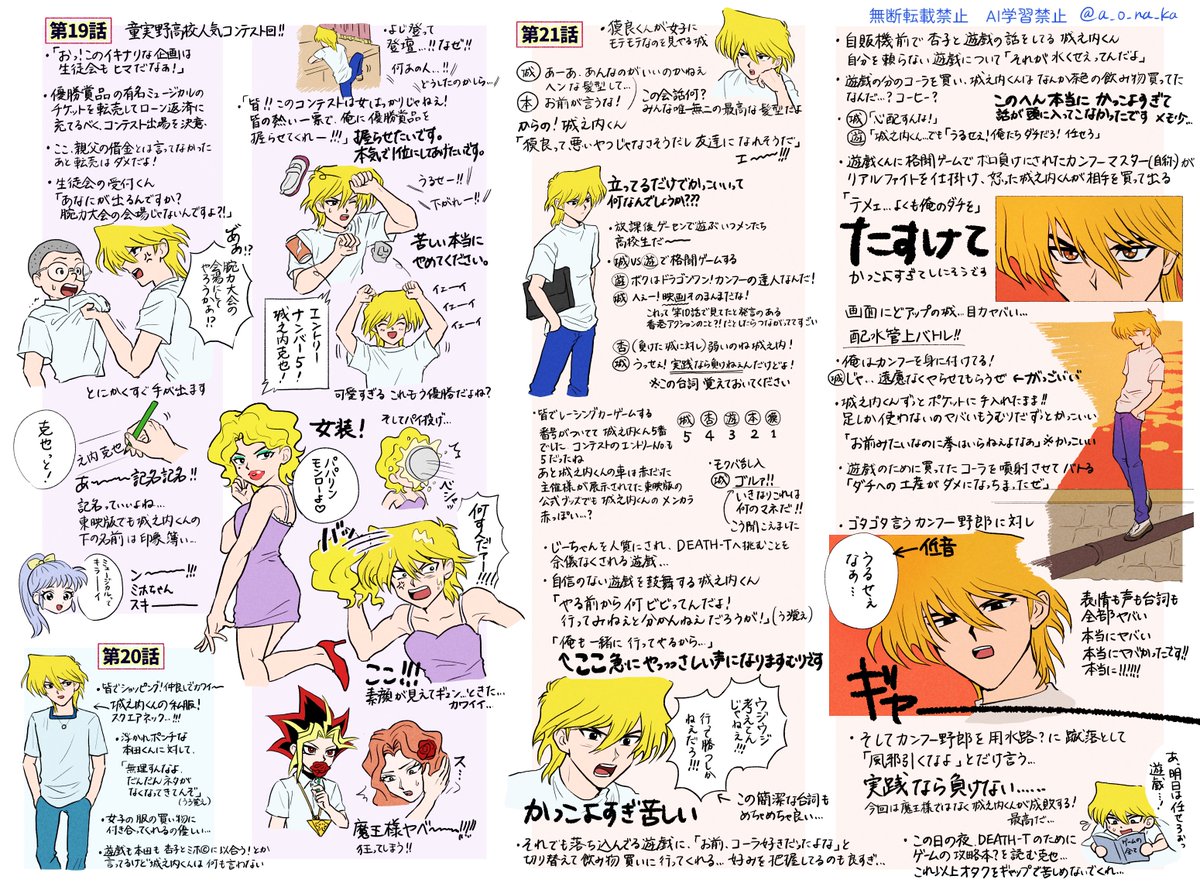 無断転載禁止 AI学習禁止 @a_o_na_ka
第19話
童実野高校人気コンテスト回!!
・「おっ!このイキナリな企画は
生徒会もヒマだなぁ!」
・優勝賞品の有名ミュージカルの
チケットを転売してローン返済に
充てるべく、コンテスト出場を決意。
・ここ、親父の借金とは言ってなかった
あと転売はダメだよ!
・生徒会の受付くん
「あなたが出るんですか?
腕力大会の会場じゃないんですよ?!」
ああ!?
腕力大会の
会場にして
やろうかぁ!?
とにかくすぐ手が出ます
克也っと!
之内克也
あ〜〜記名記名!!
記名っていいよね…
東映版でも城之内くんの
下の名前は印象薄い…
ミュージカルって
キラーイ
ン〜〜!!!
ミホちゃん
スキー
・よじ登って
登壇…!!なぜ!!
何あの人…!!
どうしたのかしら…
・「皆!!このコンテストは女ばっかりじゃねえ!
皆の熱い一票で、俺に優勝賞品を
握らせてくれー!!!」
握らせたいです。
本気で1位にしてあげたいです。
うるせー!!
下がれー!!
苦しい本当に
やめてください。
エントリー
ナンバー5!
城之内克也!
イェーイ
イェーイ
イェーイ
可愛すぎる これもう優勝だよね?
女装!
パツキン
モンローよ♡
そしてパイ投げ…
ベシャ
バッ
何すんだァー!!!!
ここ!!!
素顔が見えてギュン…ときた…
カワイイ…
ス…
魔王様ヤバ〜〜!!!!
狂ってしまう!!
第20話
・皆でショッピング!仲良しでカワイ〜
←城之内くんの私服!
スクエアネック…!!!
・浮かれポンチな
本田くんに対して、
「無理すんなよ
だんだんネタが
なくなってきてんぞ」
(うろ覚え)
・女子の服の買い物に
付き合ってくれるの優しい…
・遊戯も本田も杏子とミホ©に似合う!とか
言ってるけど城之内くんは何も言わない
第21話
・獏良くんが女子に
モテモテなのを見てる城
城 あーあ、あんなのがいいのかねえ
ヘンな髪型して…
本 お前が言うな!
この会話何?
みんな唯一無二の最高な髪型だよ
からの!城之内くん
「獏良って悪いやつじゃなさそうだし友達になれそうだ」
エ〜〜!!!
立ってるだけでかっこいいって
何なんでしょうか???
・放課後ゲーセンで遊ぶいつメンたち
高校生だ〜〜
・城VS遊で格闘ゲームする
遊 ボクはドラゴンワン!カンフーの達人なんだ!
城 へえー!映画そのまんまだな!
これって第10話で見てたと発言のある
香港アクションのこと?!だとしたらつながっててすごい
杏 (負けた城に対し)弱いのね城之内!
城 うっせえ!実践なら負けねえんだけどよ!
※この台詞 覚えておいてください
・皆でレーシングカーゲームする
番号がついてて城之内くん5番
でした コンテストのエントリーNoも
5だったね
城 杏 遊 本 獏
5 4 3 2 1
あと城之内くんの車は赤だった
主催様が展示されてた東映版の
公式グッズでも城之内くんのメンカラ
赤っぽい…?
・モクバ乱入
城 ゴルァ!!
いきなりこれは
何のマネだ!!
こう聞こえました
・じーちゃんを人質にされ、DEATH-Tへ挑むことを
余儀なくされる遊戯…
・自信のない遊戯を鼓舞する城之内くん
「やる前から何ビビってんだよ!
行ってみねえと分かんねえだろうが!」(うろ覚え)
「俺も一緒に行ってやるから…」
↑ここ急にやっっさしい声になりますむりです
ウジウジ
考えてん
じゃねえ!!!
行って勝つしか
ねえだろ!!!
かっこよすぎ苦しい
←この簡潔な台詞も
めちゃめちゃ良い…
・それでも落ち込んでる遊戯に、「お前、コーラ好きだったよな」と
切り替えて飲み物買いに行ってくれる…好みを把握してるのも良すぎ…
・自販機前で杏子と遊戯の話をしてる城之内くん
自分を頼らない遊戯について「それが水くせえってんだよ」
・遊戯の分のコーラを買い、城之内くんはなんか茶色の飲み物買ってた
なんだ…?コーヒー?
このへん本当に かっこよすぎて
話が頭に入ってこなかったです メモ少…
・城「心配すんな!」
・遊「城之内くん…でも」「うるせえ!俺たちダチだろ!任せろ」
・遊戯くんに格闘ゲームでボロ負けにされたカンフーマスター(自称)が
リアルファイトを仕掛け、怒った城之内くんが相手を買って出る
「テメェ…よくも俺のダチを」
たすけて
かっこよすぎてしにそうです
画面にどアップの城…目力ヤバい…
配水管上バトル!!
・俺はカンフーを身に付けてる!
城 じゃ…遠慮なくやらせてもらうぜ ←かっこいいが
・城之内くんずっとポケットに手入れたまま!!
足しか使わないのヤバいもうむりだずっとかっこいい
「お前みたいなのに拳はいらねえよなあ」※かっこいい
・遊戯のために買ってたコーラを噴射させてバトる
「ダチへの土産がダメになっちまったぜ」
・ゴタゴタ言うカンフー野郎に対し
うるせえ
なぁ…
←低音
表情も声も台詞も
全部ヤバい
本当にヤバい
本当にヤバかったです!!
本当に!!!!!!
ギャー
・そしてカンフー野郎を用水路?に蹴落として
「風邪引くなよ」とだけ言う…
実践なら負けない……
今回は魔王様ではなく城之内くんが成敗する!
最高だ…
あ、明日は任せろぉっ
遊戯…!
ゲームの全て
・この日の夜、DEATH-Tのために
ゲームの攻略本?を読む克也…
これ以上オタクをギャップで苦しめないでくれ…